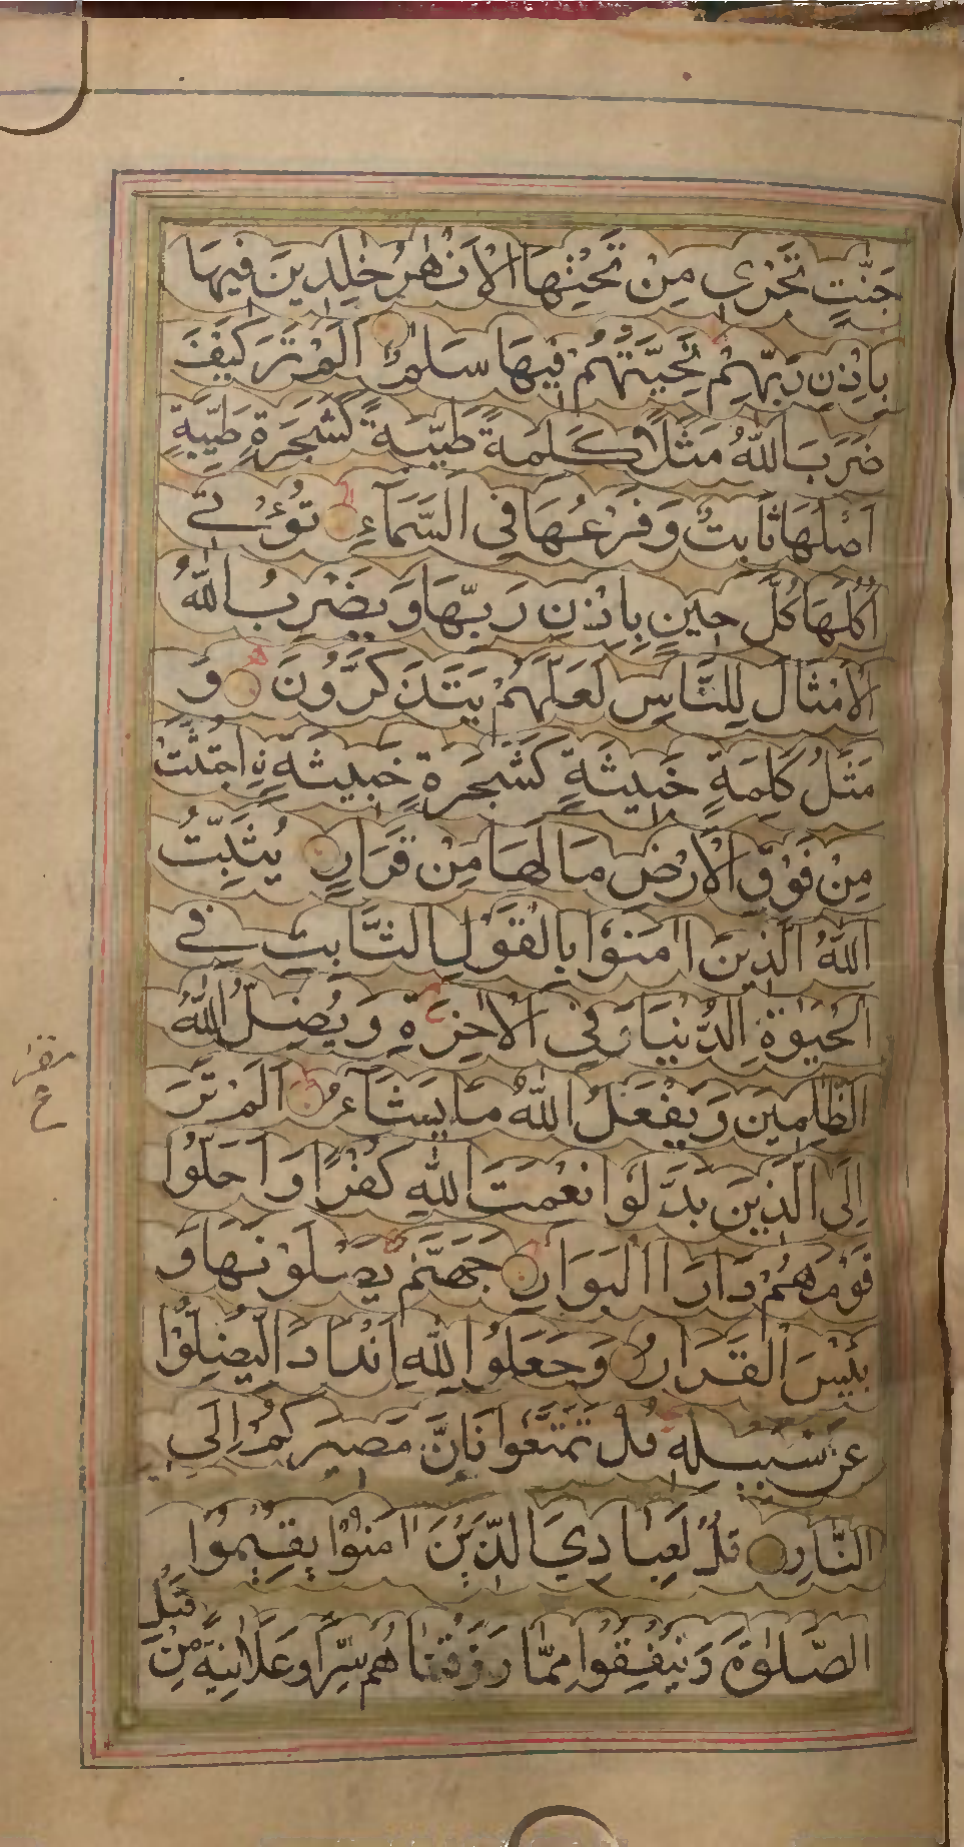 جَنّٰتٍ تَجْرِى مِنْ تَحْتِهَا الْاَنْهٰرُ خٰلِدِينَ فِيهَا
بِاِذْنِ رَبِّهِمْ تَحِيَّتُهُمْ فِيهَا سَلٰمٌ اَلَمْ تَرَ كَيْفَ
ضَرَبَ اللّٰهُ مَثَلًا كَلِمَةً طَيِّبَةً كَشَجَرَةٍ طَيِّبَةٍ
اَصْلُهَا ثَابِتٌ وَفَرْعُهَا فِى السَّمَآءِ تُؤْتِے
اُكُلَهَا كُلَّ حِينٍ بِاِذْنِ رَبِّهَا وَيَضْرِبُ اللّٰهُ
الْاَمْثَالَ لِلنَّاسِ لَعَلَّهُمْ يَتَذَكَّرُونَ وَ
مَثَلُ كَلِمَةٍ خَبِيثَةٍ كَشَجَرَةٍ خَبِيثَةٍ نِ اجْتُثَّتْ
مِنْ فَوْقِ الْاَرْضِ مَا لَهَا مِنْ قَرَارٍ يُثَبِّتُ
اللّٰهُ الَّذِينَ اٰمَنُوْا بِالْقَوْلِ الثَّابِتِ فِے
الْحَيٰوةِ الدُّنْيَا وَفِى الْاٰخِرَةِ وَيُضِلُّ اللّٰهُ
الظّٰلِمِينَ وَيَفْعَلُ اللّٰهُ مَا يَشَآءُ اَلَمْ تَرَ
اِلَى الَّذِينَ بَدَّلُوْا نِعْمَتَ اللّٰهِ كُفْرًا وَاَحَلُّوْا
قَوْمَهُمْ دَارَ االْبَوَارِ جَهَنَّمَ يَصْلَوْنَهَا وَ
بِئْسَ الْقَرَارُ وَجَعَلُوْا لِلّٰهِ اَنْدَادًا لِّيُضِلُّوْا
عَنْ سَبِيلِهٖ قُلْ تَمَتَّعُوْا فَاِنَّ مَصِيرَكُمْ اِلَى
النَّارِ قُلْ لِعِبَادِيَ الَّذِينَ اٰمَنُوْا يُقِيمُوا
الصَّلٰوةَ وَيُنْفِقُوا مِمَّا رَزَقْنٰاهُمْ سِرًّا وَعَلَانِيَةً مِنْ قَبْلِ